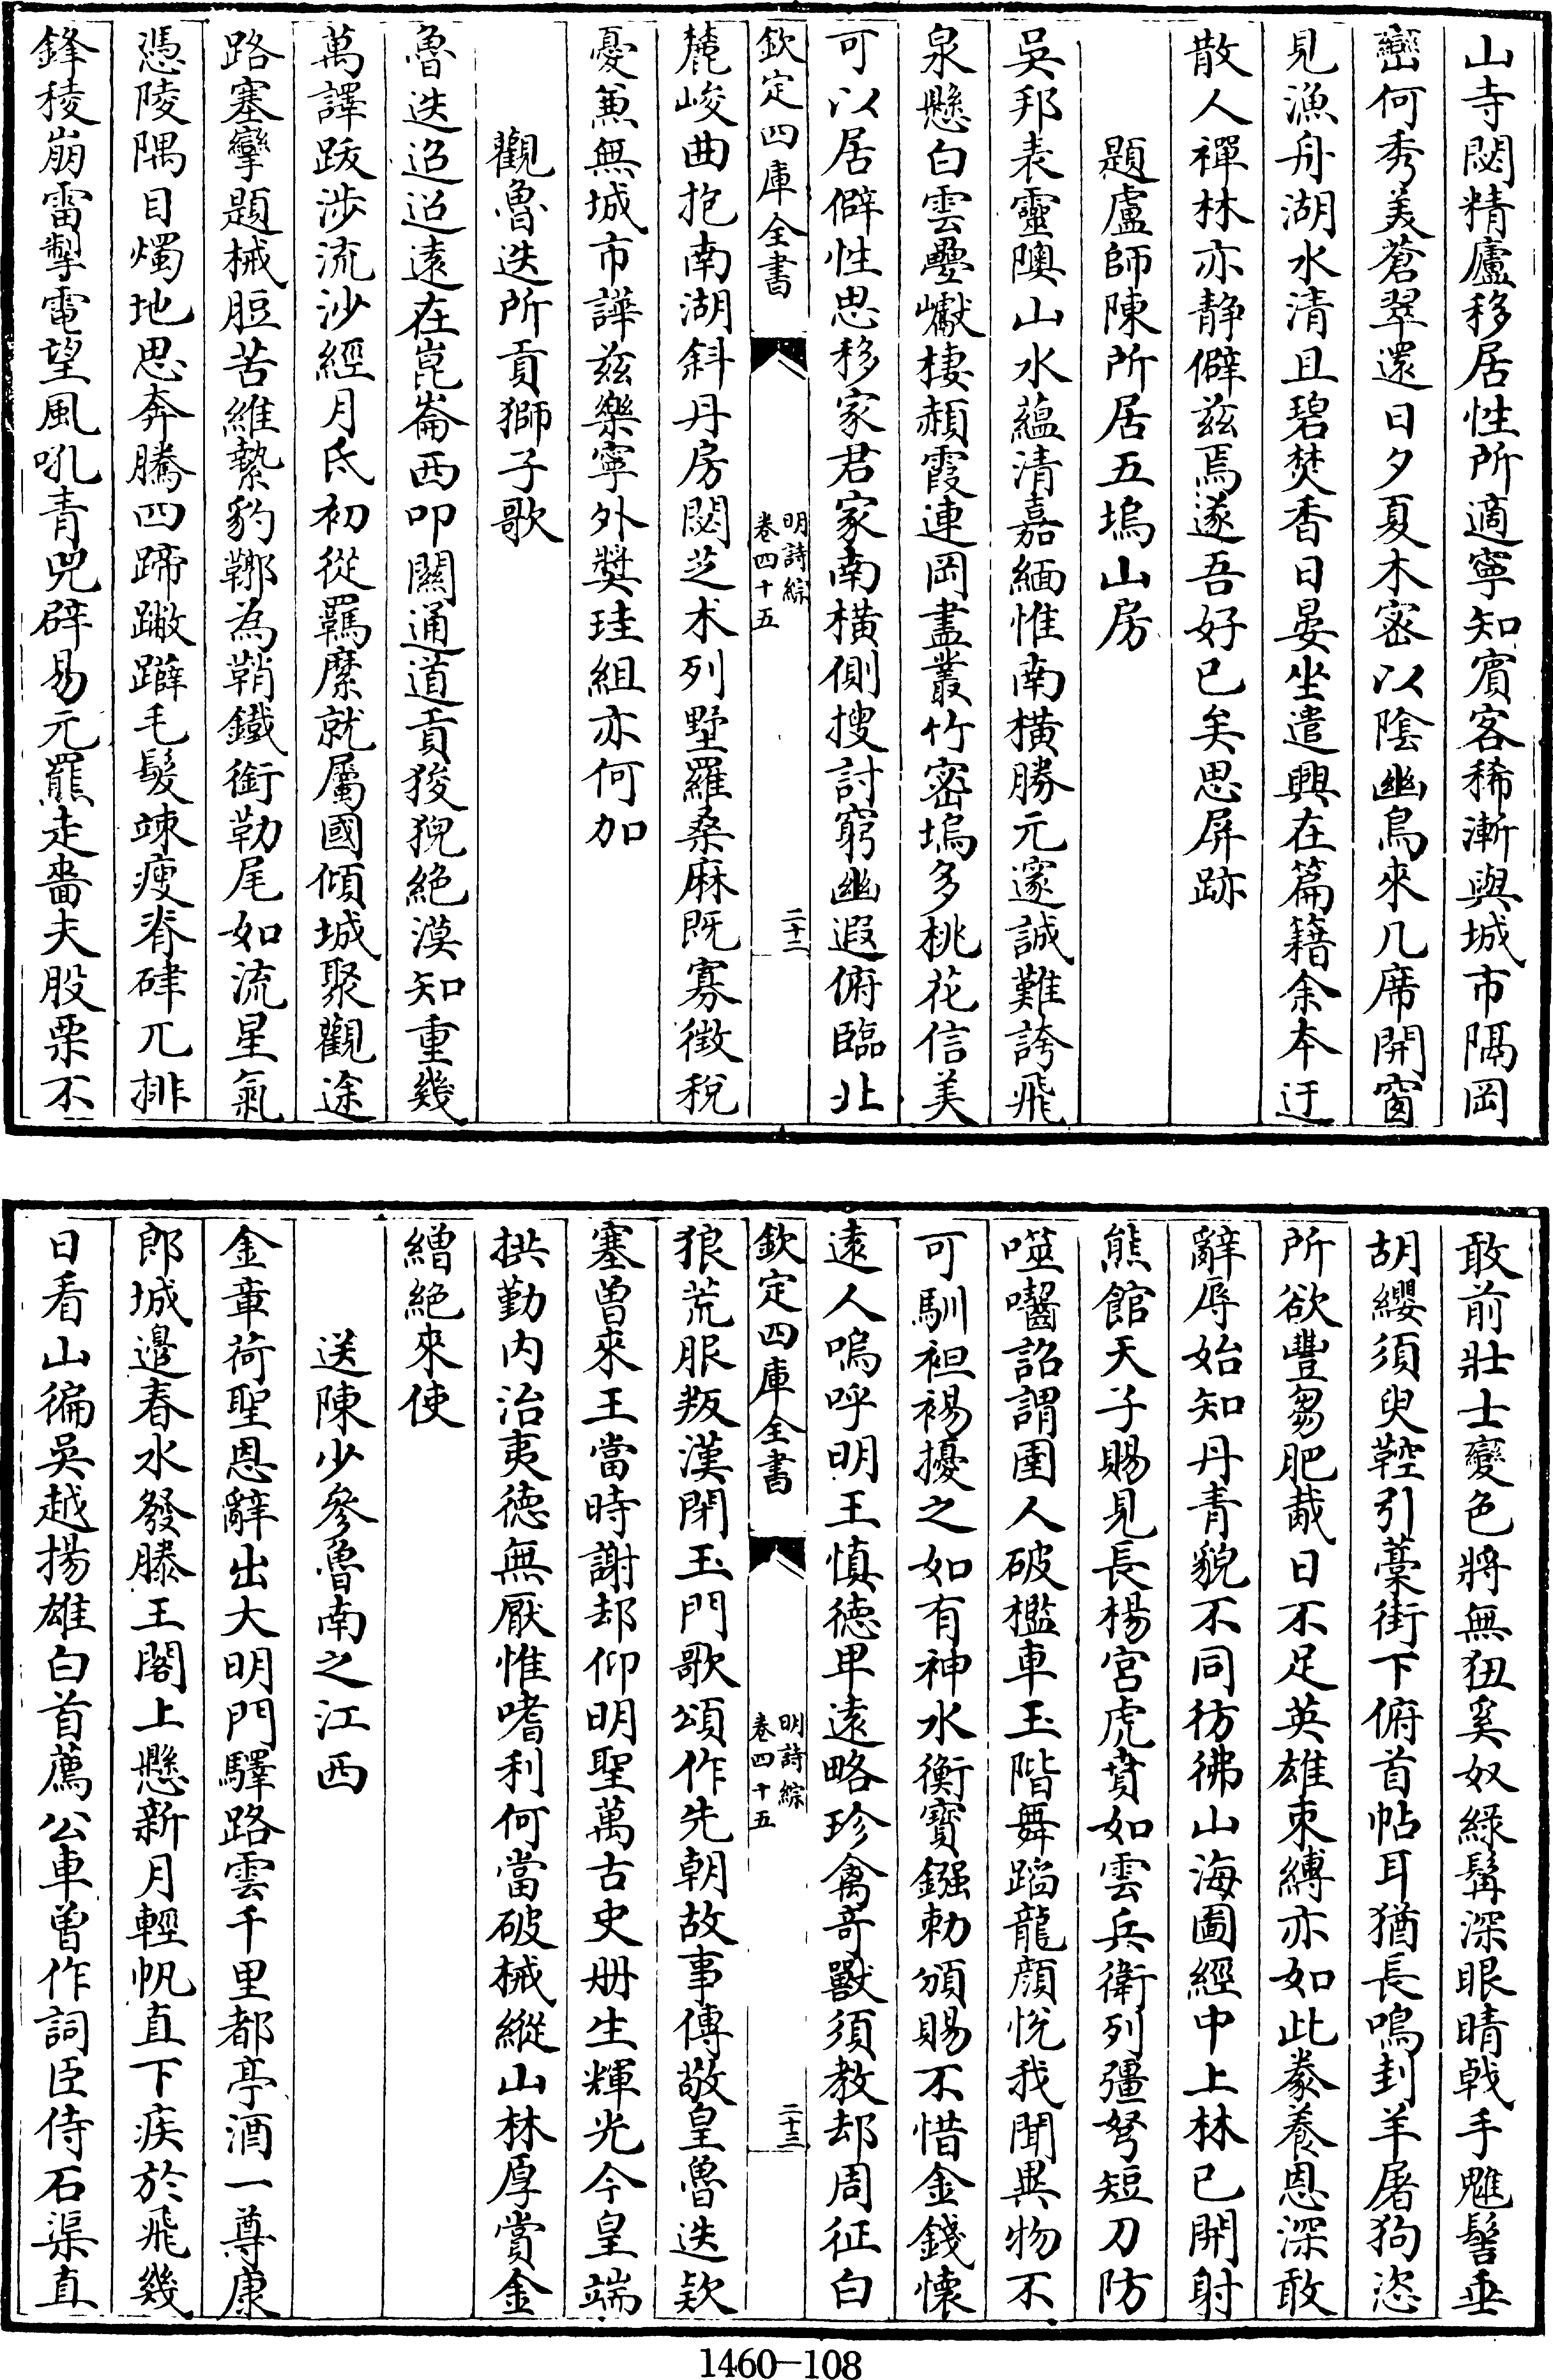 山寺閟精廬移居性所適寧知賓客稀漸與城市隔岡
巒何秀美蒼翠還日夕夏木密以陰幽鳥來几席開窗
見漁舟湖水清且碧焚香日晏坐遣興在篇籍余本迂
散人禪林亦静僻兹焉遂吾好已矣思屏跡
題盧師陳所居五塢山房
吳邦表靈隩山水蘊清嘉緬惟南橫勝元邃誠難誇飛
泉懸白雲疊巘棲赬霞連岡盡叢竹密塢多桃花信美
可以居僻性思移家君家南橫側搜討窮幽遐俯臨北
欽定四庫全書
明詩綜
卷四十五
二十二
麓峻曲抱南湖斜丹房閟芝术列墅羅桑麻既寡徵稅
憂兼無城市譁兹樂寧外奬珪組亦何加
觀魯迭所貢獅子歌
魯迭迢迢遠在崑崙西叩關通道貢狻猊絶漠知重幾
萬譯跋涉流沙經月氐初從羈縻就屬國傾城聚觀途
路塞攣題械脰苦維縶豹鞹為鞘鐵銜勒尾如流星氣
憑陵隅目燭地思奔騰四蹄蹴躃毛髮竦瘦脊硉兀排
鋒稜崩雷掣電望風吼青兕辟易元羆走嗇夫股栗不
敢前壯士變色將無狃奚奴綠髯深眼睛戟手魋髻垂
胡纓須臾鞚引藁街下俯首帖耳猶長鳴刲羊屠狗恣
所欲豐芻肥胾日不足英雄束縛亦如此豢養恩深敢
辭辱始知丹青貌不同彷彿山海圖經中上林已開射
熊館天子賜見長楊宮虎賁如雲兵衛列彊弩短刀防
噬囓詔謂圉人破檻車玉階舞蹈龍顔悅我聞異物不
可馴袒裼擾之如有神水衡寶鏹勅頒賜不惜金錢懷
遠人嗚呼明王慎德卑遠略珍禽奇獸須教却周征白
欽定四庫全書
明詩綜
卷四十五
二十三
狼荒服叛漢閉玉門歌頌作先朝故事傳敬皇魯迭欵
塞曾來王當時謝却仰明聖萬古史册生輝光今皇端
拱勤内治夷德無厭惟嗜利何當破械縱山林厚賞金
繒絶來使
送陳少參魯南之江西
金章荷聖恩辭出大明門驛路雲千里都亭酒一尊康
郎城邉春水發滕王閣上懸新月輕帆直下疾於飛幾
日看山徧吳越揚雄白首薦公車曾作詞臣侍石渠直
1460—108